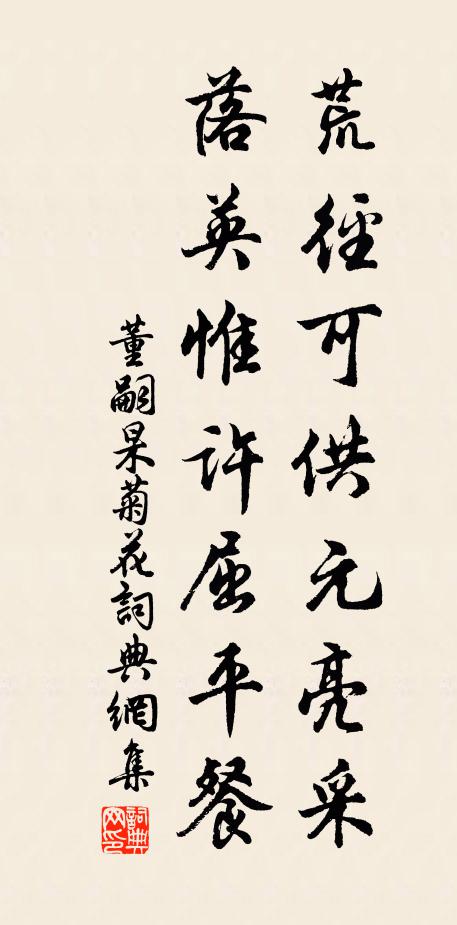 荒徑可供元亮采
落英惟許屈平餐
董嗣杲菊花詞典網集
詞典網印